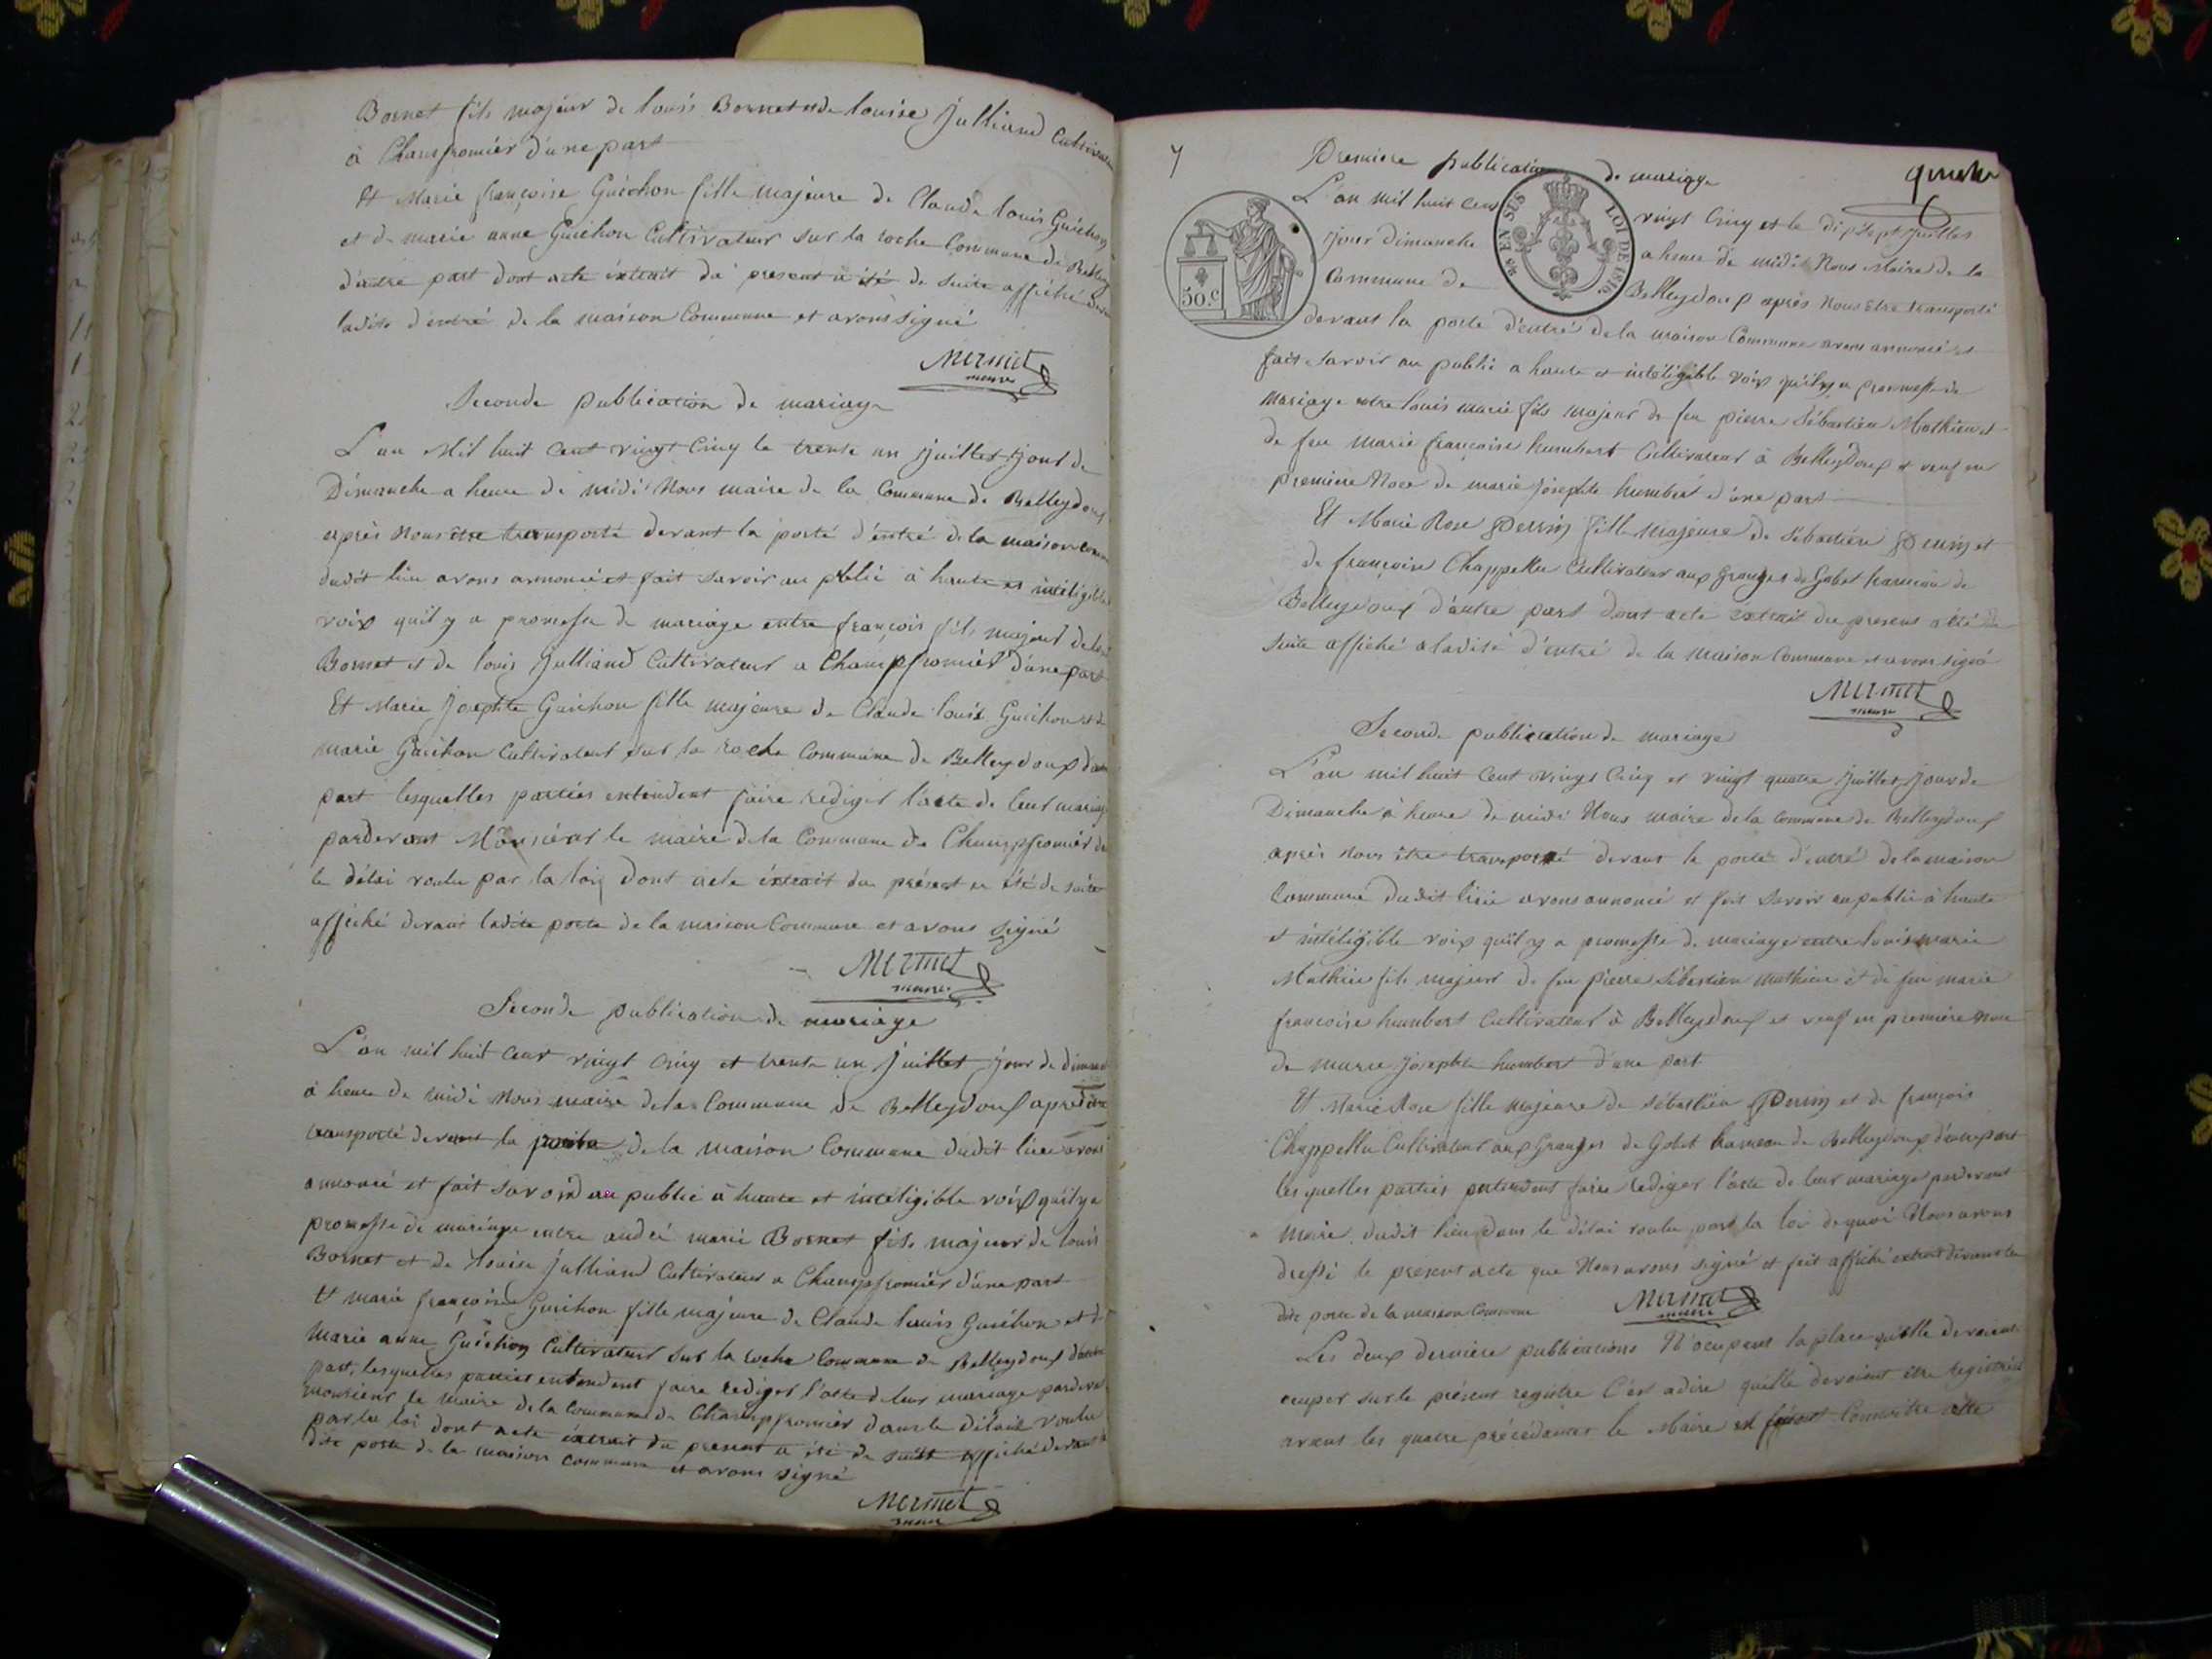 Bornet fils majeur de louis Bornet et de louise Julliand Cultivateur
à Champfromier d'une part
Et Marie françoise Guichon fille majeure de Claude louis Guichon
et de marie anne Guichon Cultivateur sur la roche Commune de Belleydoux
d'autre part dont acte extrait du présent a été de suite affiché devant
ladite d'entré de la maison Commune et avons signé
Mermet
maire
Seconde publication de mariage
L'an Mil huit Cent vingt Cinq le trente un Juillet Jour de
Dimanche a heure de midi Nous maire de la Commune de Belleydoux
après Nous être transporté devant la porte d'entré de la maison comm
dudit lieu avons annoncé et fait savoir au public à haute et intéligible
voix qu'il y a promesse de mariage entre françois fils majeur de louis
Bornet et de louis Julliand Cultivateur a Champfromier d'une part
Et Marie Josephte Guichon fille majeure de Claude louis Guichon et de
marie Guichon Cultivateur sur la roche Commune de Belleydoux d'autre
part lesquelles parties entendent faire rediger l'acte de leur mariage
pardevant Monsieur le maire de la Commune de Champfromier dans
le délai voulu par la loi dont acte extrait du présent a été de suite
affiché devant ladite porte de la maison Commune et avons signé
Mermet
maire
Seconde publication de mariage
L'an mil huit Cent vingt Cinq et trente un Juillet Jour de dimanche
à heure de midi Nous maire de la Commune de Belleydoux après être
transporté devant la porte de la maison Commune dudit lieu avons
annoncé et fait savoir au public à haute et intéligible voix qu'il y a
promesse de mariage entre andré marie Bornet fils majeur de louis
Bornet et de Julliand Cultivateur a Champfromier d'une part
Et marie françoise Guichon fille majeure de Claude louis Guichon et de
Marie anne Guichon Cultivateur sur la roche Commune de Belleydoux d'autre
part, lesquelles parties entendent faire rediger l'acte de leur mariage pardevant
monsieur le maire de la Commune de Champfromier dans le délai voulu
par la loi dont acte extrait du présent a été de suite affiché devant la
dite porte de la maison Commune et avons signé
Mermet
maire
7
Première publication de mariage
L'an mil huit Cent vingt Cinq et le dix sept Juillet
Jour Dimanche a heure de midi Nous Maire de la
Commune de Belleydoux après Nous être transporté
50.c
EN SUS
LOI DE 1816
devant la porte d'entré de la maison Commune avons annoncé et
fait savoir au public a haute et intéligible voix qu'il y a promesse de
Mariage entre louis marie fils majeur de feu pierre Sébastien Mathieu et
de feu marie françoise humbert Cultivateur à Belleydoux et veuf en
premiere Noce de marie Josephte humbert d'une part
Et Marie Rose Perrin fille majeure de Sébastien Perrin et
de françoise Chappellu Cultivateur aux Granges de Gobet hameau de
Belleydoux d'autre part dont acte extrait du present a été de
suite affiché a ladite d'entré de la maison Commune et avons signé
Mermet
maire
Seconde publication de mariage
L'an mil huit Cent vingt Cinq et vingt quatre Juillet Jour de
Dimanche à heure de midi Nous maire de la Commune de Belleydoux
après Nous être transporté devant la porte d'entré de la maison
Commune dudit lieu avons annoncé et fait savoir au public à haute
et intéligible voix qu'il y a promesse de mariage entre louis marie
Mathieu fils majeur de feu pierre Sébastien mathieu et de feu marie
francoise humbert Cultivateur à Belleydoux et veuf en première noce
de marie Josephte humbert d'une part
Et Marie Rose fille majeure de Sébastien Perrin et de françois
Chappellu Cultivateur aux Granges de Gobet hameau de Belleydoux d'autre part
lesquelles parties entendent faire rediger l'acte de leur mariage pardevant
maire dudit lieu dans le délai voulu par la loi de quoi Nous avons
dressé le présent acte que Nous avons signé et fait affiché extrait devant la
dite porte de la maison Commune
Mermet
maire
Les deux dernière publications N'ocupent la place qu'elle devraient
ocuper sur le présent registre C'est adire qu'elle devoient être registrées
avant les quatre précédentes le Maire